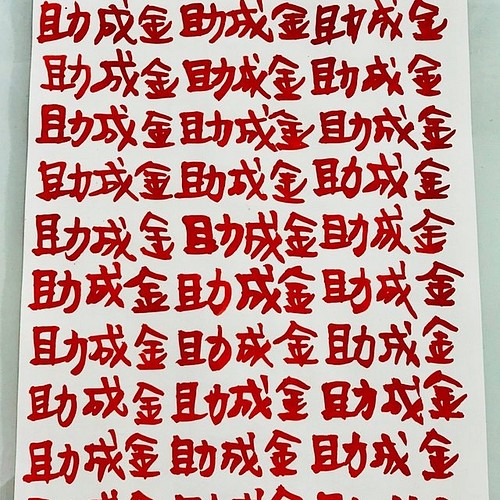 助成金 助成金 助成金
助成金 助成金 助成金
助成金 助成金 助成金
助成金 助成金 助成金
助成金 助成金 助成金
助成金 助成金 助成金
助成金 助成金 助成金
助成金 助成金 助成金
助成金 助成金 助成金